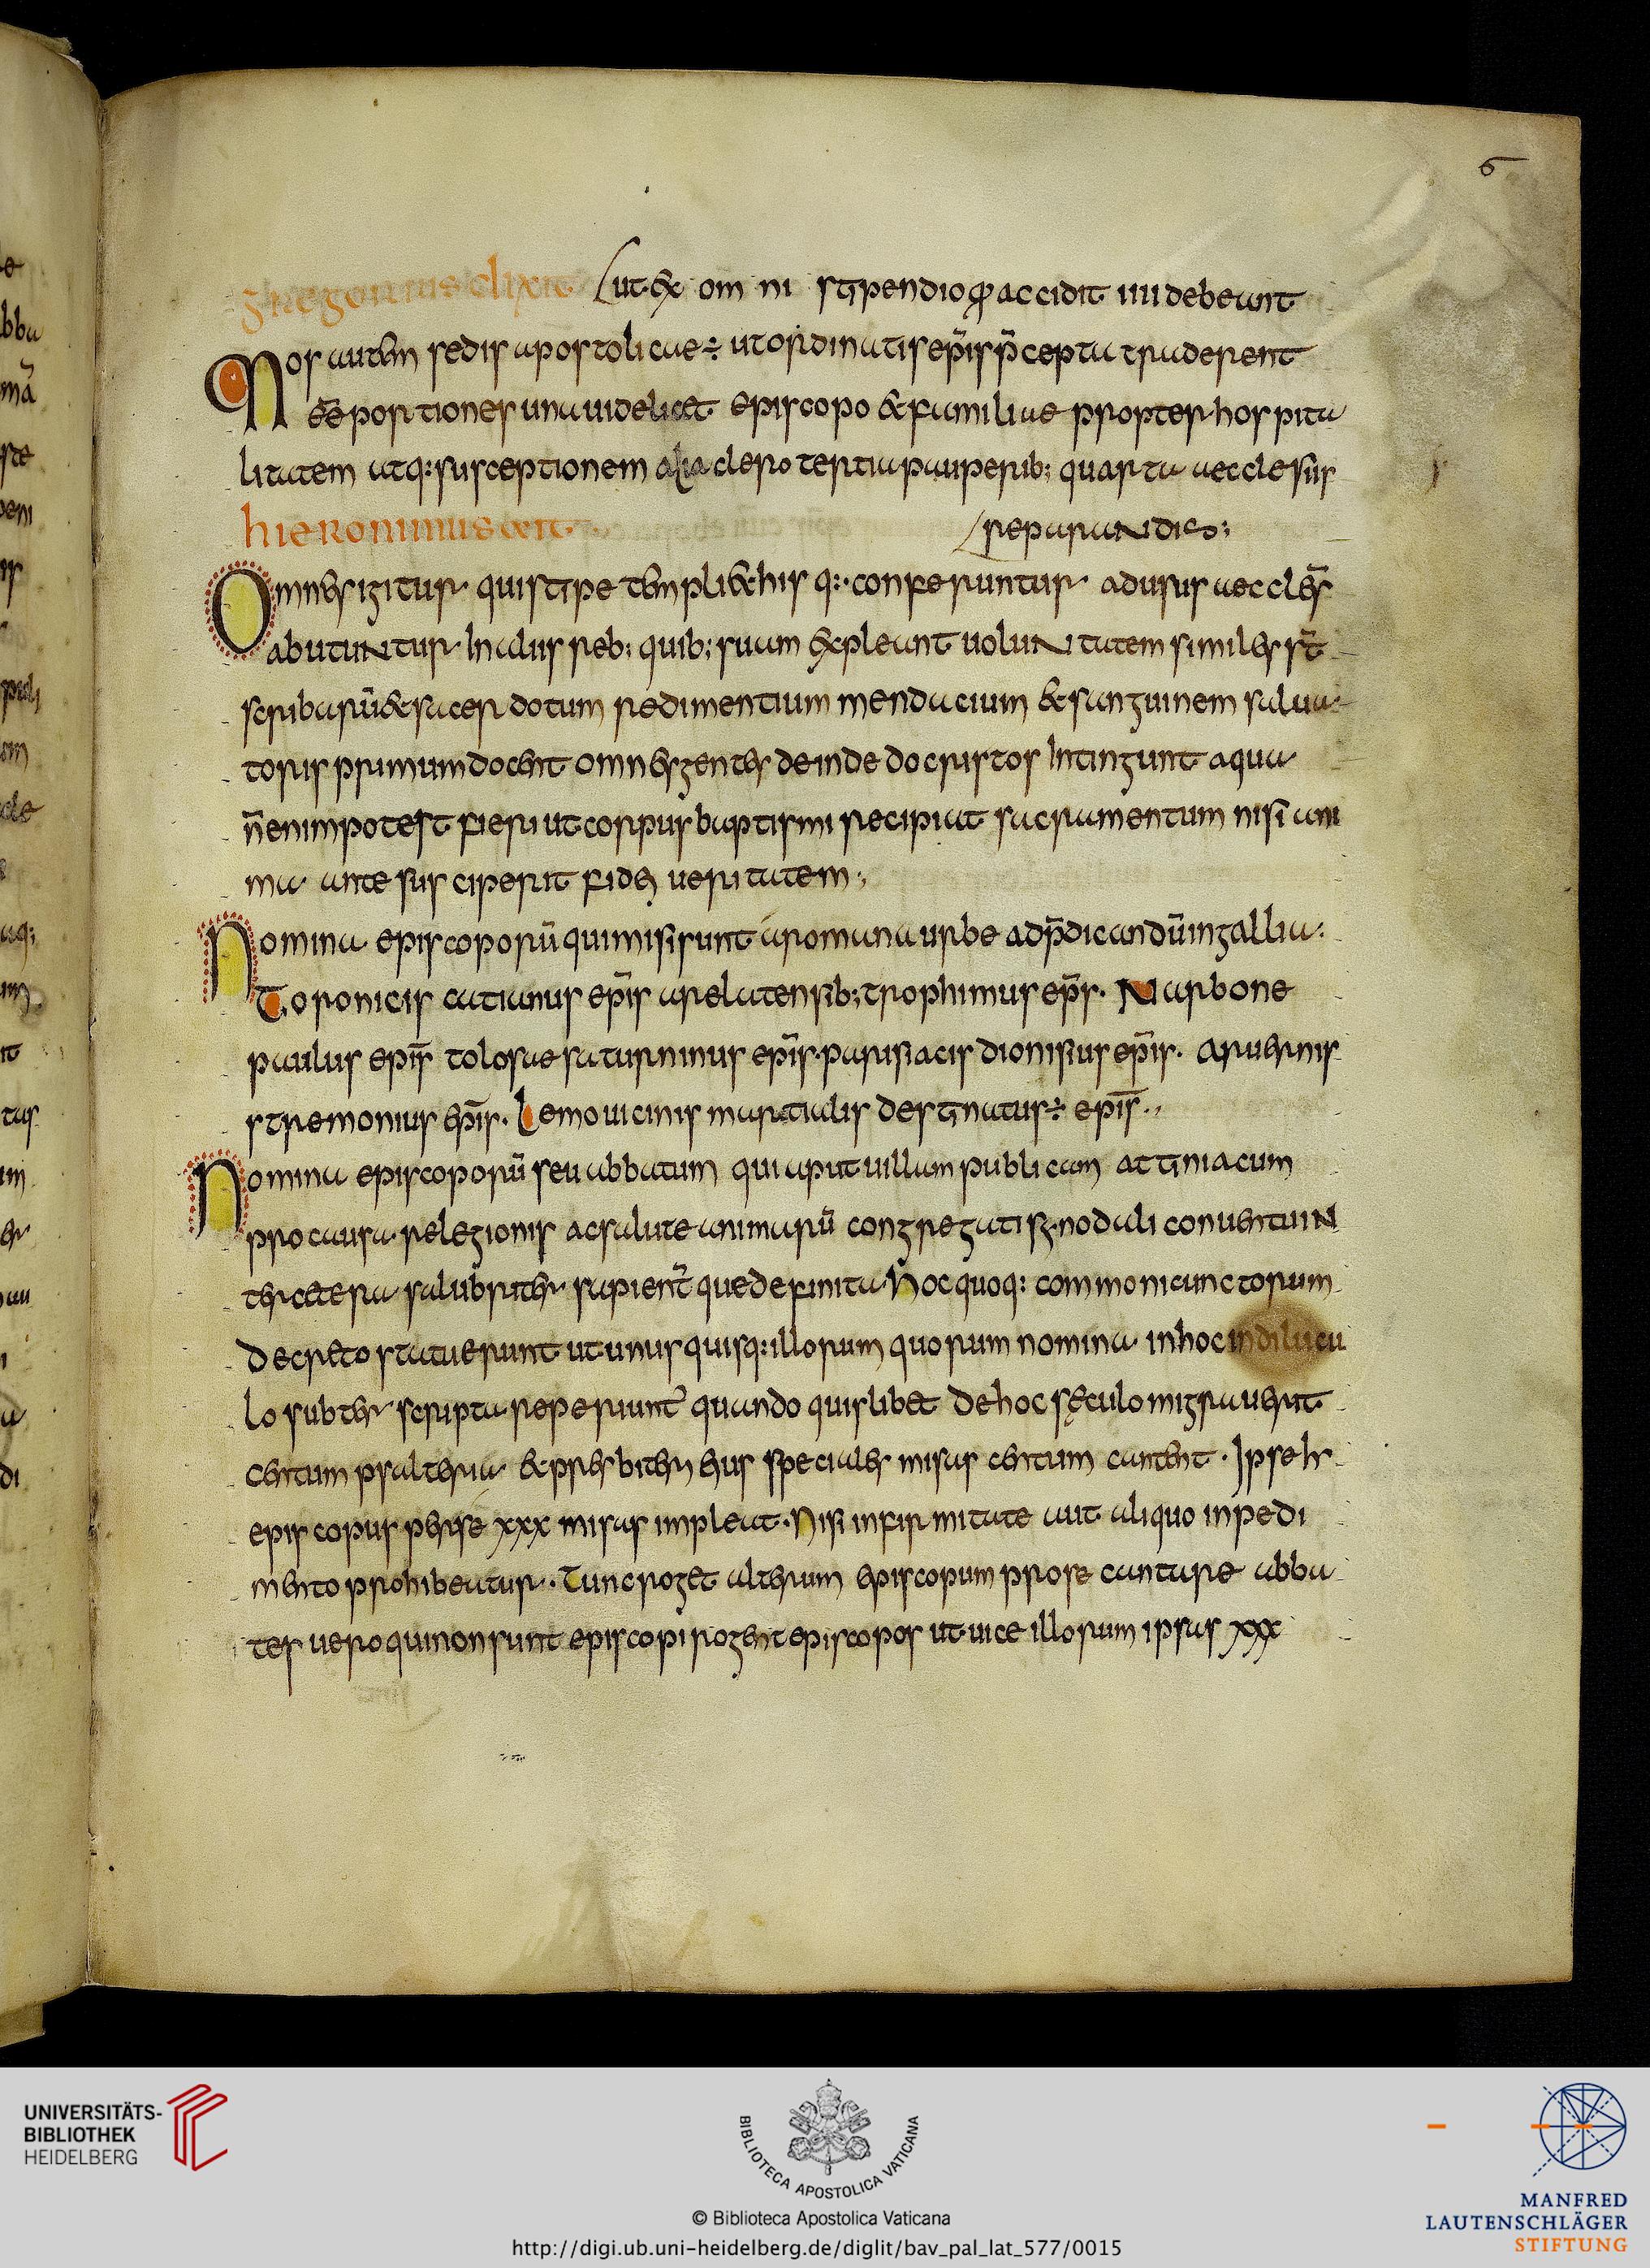 6
Gregorius dixit ut ex om ni stipendio ꝙ accidit iiii debeant
Mos autem sedis apostolicae ÷ ut ordinatis ep̄is p̄cepta traderent
eē portiones una uidelicet episcopo & familiae propter hospita
litatem atq: susceptionem alia clero tertia pauperib; quarta aecclesiis
hieronimus dixit reparandis;
Omnes igitur qui stipe templi & his q: conferuntur ad usus aeccles̄
abutuntur in aliis reb; quib; suam expleant uoluntatem similes st̄
scribarū & sacerdotum redimentium mendacium & sanguinem salua
toris primum docent omnes gentes deinde doctos intingunt aqua
n̄ enim potest fieri ut corpus baptismi recipiat sacramentum nisi ani
ma ante susciperit fidei ueritatem;
Nomina episcoporū qui misi sunt a romana urbe ad p̄dicandū in gallia.
Toronicis catianus ep̄is arelatensib; trophimus ep̄s. Narbone
paulus epis̄ tolosae saturninus ep̄is. parisiacis dionisius ep̄is. aruernis
stremonius ep̄is. Lemouicinis martialis destinatus ÷ epis̄.,
Nomina episcoporū seu abbatum qui aput uillam publicam attiniacum
pro causa relegionis ac salute animarū congregati synodali conuentu in
ter cetera salubriter sapient̄ que definita Hoc quoq: commoni cunctorum
decreto statuerunt ut unusquisq: illorum quorum nomina in hoc indilucu
lo subter scripta reperiunt̄ quando quislibet de hoc sęculo migrauerit
centum psalteria & presbiteri eius speciales misas centum cantent. Ipse hr
episcopus per se xxx misas impleat. Nisi infirmitate aut aliquo inpedi
mento prohibeatur. Tunc roget alterum episcopum pro se cantare abba
tes uero qui non sunt episcopi rogent episcopos ut uice illorum ipsas xxx
UNIVERSITÄTS-
BIBLIOTHEK
HEIDELBERG
BIBLIOTECA APOSTOLICA VATICANA
© Biblioteca Apostolica Vaticana
http://digi.ub.uni-heidelberg.de/diglit/bav_pal_lat_577/0015
MANFRED
LAUTENSCHLÄGER
STIFTUNG